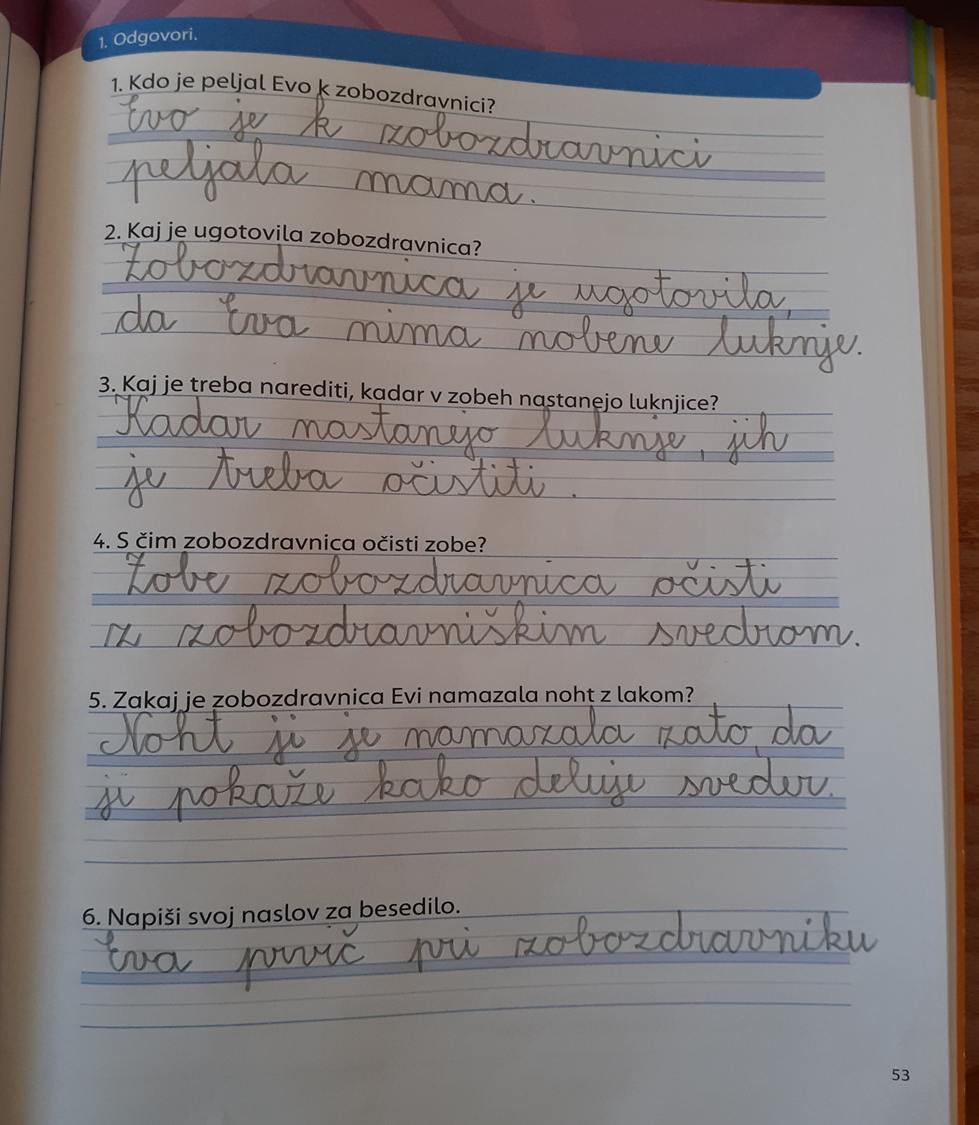 1. Odgovori.
1. Kdo je peljal Evo k zobozdravnici?
Evo je k zobozdravnici
peljala mama.
2. Kaj je ugotovila zobozdravnica?
Zobozdravnica je ugotovila,
da Eva nima nobene luknje.
3. Kaj je treba narediti, kadar v zobeh nastanejo luknjice?
Kadar nastanejo luknje, jih
je treba očistiti.
4. S čim zobozdravnica očisti zobe?
Zobe zobozdravnica očisti
z zobozdravniškim svedrom.
5. Zakaj je zobozdravnica Evi namazala noht z lakom?
Noht ji je namazala zato, da
ji pokaže kako deluje sveder.
6. Napiši svoj naslov za besedilo.
Eva prvič pri zobozdravniku
53